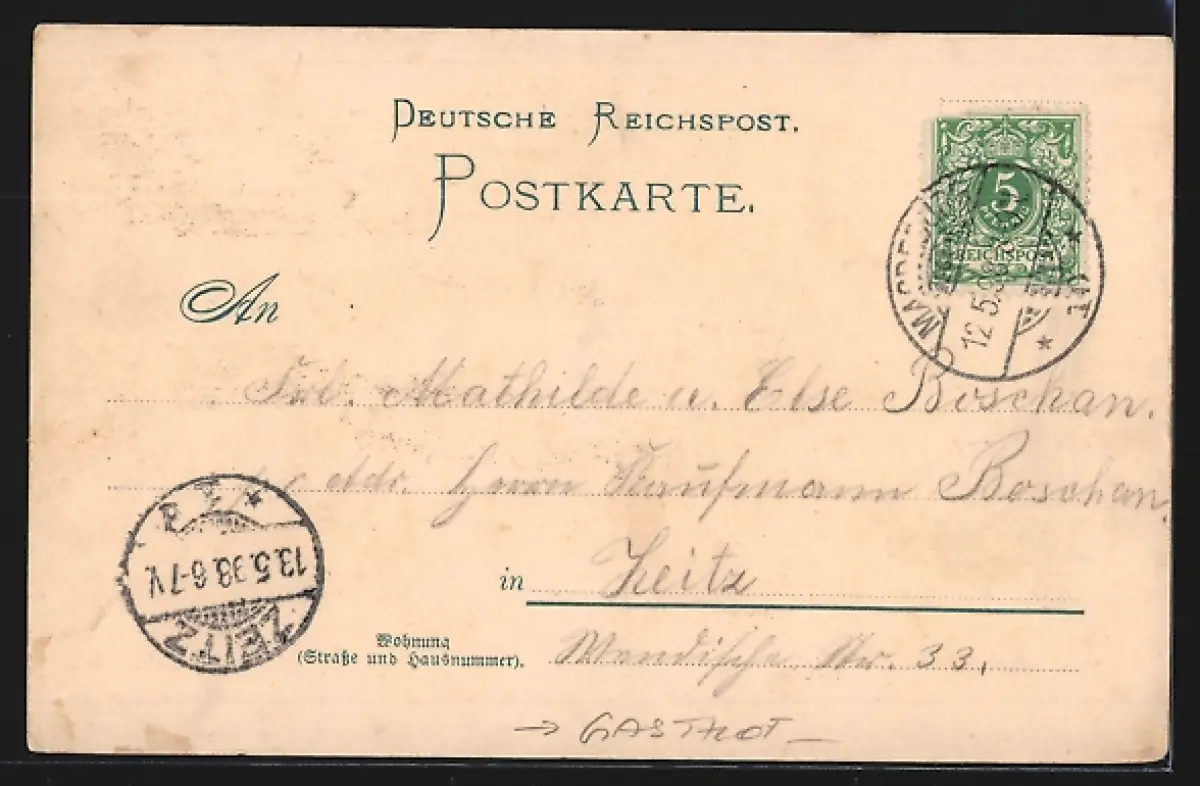 DEUTSCHE REICHSPOST.
POSTKARTE.
5
REICHSPOST
12.5.98
An
Frl. Mathilde u. Else Boschan.
Adr. Herrn Kaufmann Boschan.
13.5.98.6-7V.
ZEITZ
in Zeitz
Wohnung
(Straße und Hausnummer).
Wendische Str. 33.
→ GASTHOF –